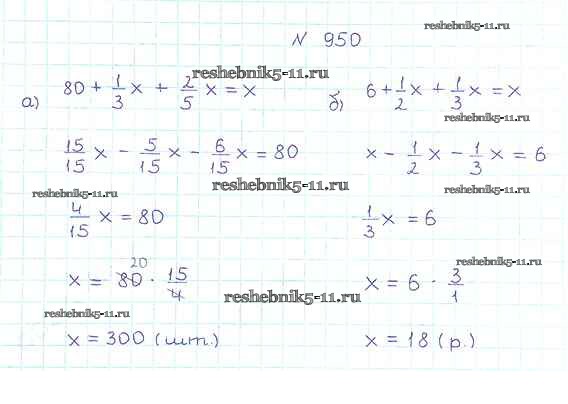 reshebnik5-11.ru
N 950
reshebnik5-11.ru
а) 80 + 1/3 x + 2/5 x = x
б) 6 + 1/2 x + 1/3 x = x
reshebnik5-11.ru
15/15 x - 5/15 x - 6/15 x = 80
x - 1/2 x - 1/3 x = 6
reshebnik5-11.ru
reshebnik5-11.ru
reshebnik5-11.ru
4/15 x = 80
1/3 x = 6
reshebnik5-11.ru
20
x = 80 · 15/4
x = 6 · 3/1
reshebnik5-11.ru
reshebnik5-11.ru
x = 300 (шт.)
x = 18 (р.)